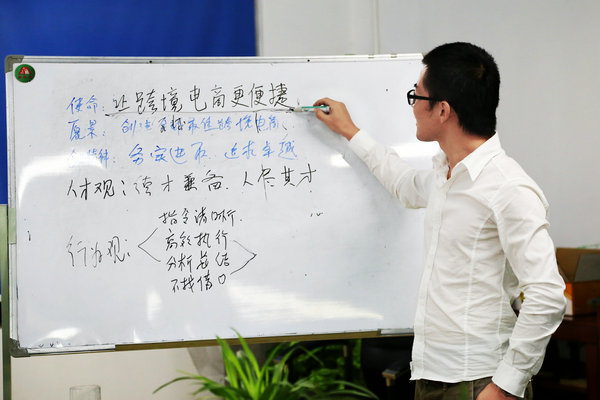 使命：让跨境电商更便捷
愿景：创造最佳跨境电商
精神：务实进取、追求卓越
人才观：德才兼备、人尽其才
行为观：
指令清晰
高效执行
分析总结
不找借口